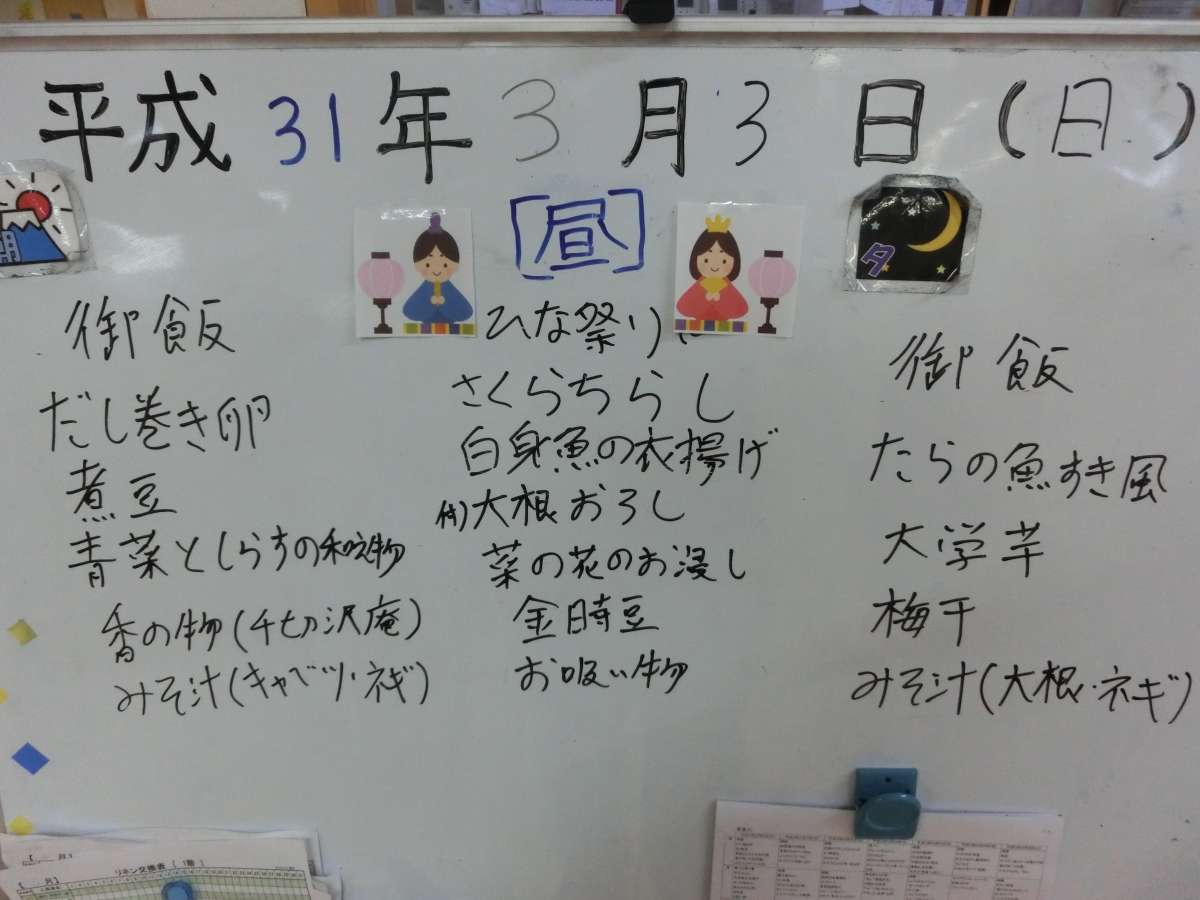 平成31年3月3日(日)
御飯
だし巻き卵
煮豆
青菜としらすの和え物
香の物(千切沢庵)
みそ汁(キャベツ・ネギ)
[昼]
ひな祭り
さくらちらし
白身魚の衣揚げ
付)大根おろし
菜の花のお浸し
金時豆
お吸い物
夕
御飯
たらの魚すき風
大学芋
梅干
みそ汁(大根・ネギ)
リネン交換表 (1階)